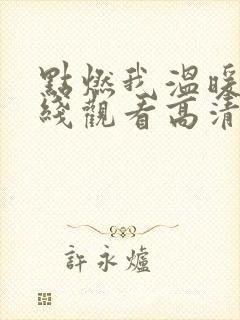 點燃我溫暖
綫觀看高清
許永爐